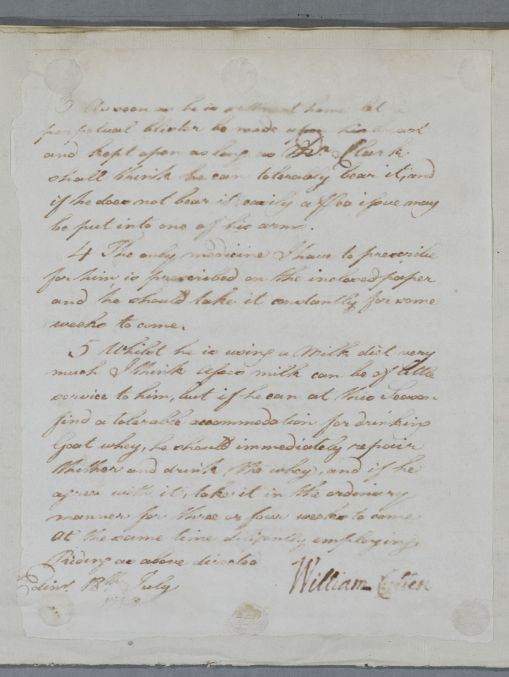 3 As soon as he is returned home let a
perpetual blister be made upon his breast
and kept open as long as Dr. Clark
shall think he can tolerably bear it, and
if he does not bear it easily a Pea issue may
be put into one of his arms.
4 The only medicine I have to prescribe
for him is prescribed on the inclosed paper
and he should take it constantly for some
weeks to come.
5 Whilst he is using a Milk diet very
much I think Asses milk can be of little
service to him, but if he can at this Season
find a tolerable accommodation for drinking
Goat whey, he should immediately repair
thither and drink the whey, and if he
agree with it, take it in the ordinary
manner for three or four weeks to come
at the same time diligently employing
Riding as above directed
Edinr. 18th July
William Cullen